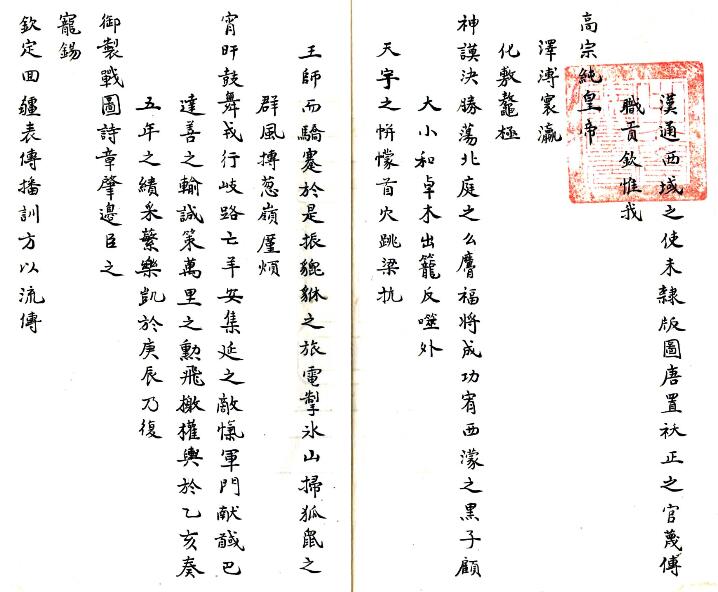 漢通西域之使未隸版圖唐置祆正之官蔑傳
職貢欽惟我
高宗純皇帝
澤溥寰瀛
化敷鼇極
神謨決勝蕩北庭之么麿福將成功宥西濛之黑子顧
大小和卓木出籠反噬外
天宇之帡幪首穴跳梁抗
王師而驕蹇於是振貔貅之旅電掣氷山掃狐鼠之
群風摶葱嶺廑煩
宵旰鼓舞戎行歧路亡羊安集延之敵愾軍門献馘巴
達善之輸誠策萬里之勳飛檄權輿於乙亥奏
五年之績采蘩樂凱於庚辰乃復
御製戰圖詩章肇邊臣之
寵錫
欽定回疆表傳播訓方以流傳